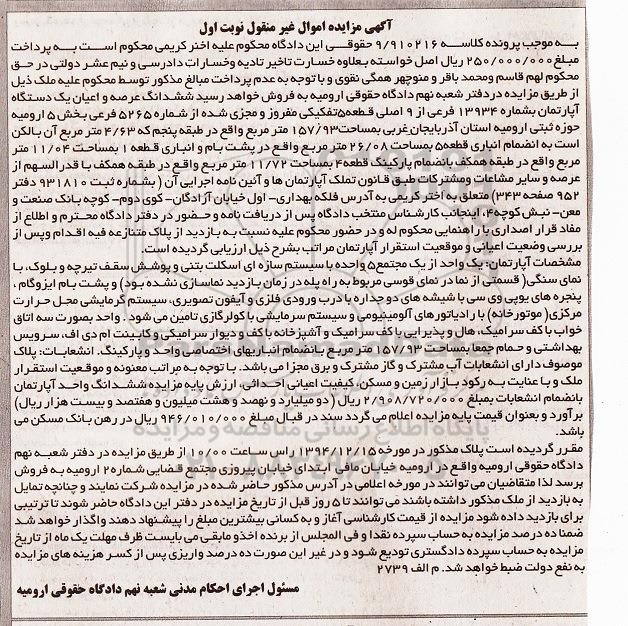 آگهی مزایده اموال غیر منقول نوبت اول
به موجب پرونده کلاسه ۹/۹۱۰۲۱۶ حقوقی این دادگاه محکوم علیه اختر کریمی محکوم است به پرداخت
مبلغ ۲۵۰/۰۰۰/۰۰۰ ریال اصل خواسته بعلاوه خسارت تاخیر تادیه وخسارات دادرسی و نیم عشر دولتی در حق
محکوم لهم قاسم ومحمد باقر و منوچهر همگی نقوی و با توجه به عدم پرداخت مبالغ مذکور توسط محکوم علیه ملک ذیل
از طریق مزایده دردفتر شعبه نهم دادگاه حقوقی ارومیه به فروش خواهد رسید ششدانگ عرصه و اعیان یک دستگاه
آپارتمان بشماره ۱۳۹۳۴ فرعی از ۹ اصلی قطعه۵تفکیکی مفروز و مجزی شده از شماره ۵۲۶۵ فرعی بخش ۵ ارومیه
حوزه ثبتی ارومیه استان آذربایجان غربی بمساحت۱۵۷/۹۳ متر مربع واقع در طبقه پنجم که ۴/۶۳ متر مربع آن بالکن
است به انضمام انباری قطعه۵ بمساحت ۲۶/۰۸ متر مربع واقع در پشت بام و انباری قطعه ۱ بمساحت ۱۱/۰۴ متر
مربع واقع در طبقه همکف بانضمام پارکینگ قطعه۴ بمساحت ۱۱/۷۲ متر مربع واقع در طبقه همکف با قدرالسهم از
عرصه و سایر مشاعات ومشترکات طبق قانون تملک آپارتمان ها و آئین نامه اجرایی آن ( بشماره ثبت ۹۳۱۸۱۰ دفتر
۹۵۲ صفحه ۳۴۳) متعلق به اختر کریمی به آدرس فلکه بهداری- اول خیابان آزادگان- کوی دوم- کوچه بانک صنعت و
معدن- نبش کوچه۴، اینجانب کارشناس منتخب دادگاه پس از دریافت نامه و حضور در دفتر دادگاه محترم و اطلاع از
مفاد قرار اصداری با راهنمایی محکوم له و در حضور محکوم علیه نسبت به بازدید از پلاک متنازعه فیه اقدام وپس از
بررسی وضعیت اعیانی و موقعیت استقرار آپارتمان مراتب بشرح ذیل ارزیابی گردیده است.
مشخصات آپارتمان: یک واحد از یک مجتمع۵ واحده با سیستم سازه ای اسکلت بتنی و پوشش سقف تیرچه و بلوک، با
نمای سنگی( قسمتی از نما در نمای قوسی مربوط به راه پله در زمان بازدید نماسازی نشده بود) و پشت بام ایزوگام ،
پنجره های یوپی وی سی با شیشه های دوجداره با درب ورودی فلزی و آیفون تصویری، سیستم گرمایشی محل حرارت
مرکزی( موتورخانه) با رادیاتور های آلومینیومی و سیستم سرمایشی با کولرگازی تامین می شود . واحد بصورت سه اتاق
خواب با کف سرامیک، هال و پذیرایی با کف سرامیک و آشپزخانه با کف و دیوار سرامیکی و کابینت ام دی اف، سرویس
بهداشتی و حمام جمعا بمساحت ۱۵۷/۹۳ متر مربع بانضمام انباریهای اختصاصی واحد و پارکینگ. انشعابات: پلاک
موصوف دارای انشعابات آب مشترک و گاز مشترک و برق مجزا می باشد. با توجه به مراتب معنونه و موقعیت استقرار
ملک و با عنایت به رکود بازار زمین و مسکن، کیفیت اعیانی احداثی، ارزش پایه مزایده ششدانگ واحد آپارتمان
بانضمام انشعابات بمبلغ ۲/۹۰۸/۷۲۰/۰۰۰ ریال (دو میلیارد و نهصد و هشت میلیون و هفتصد و بیست هزار ریال)
برآورد و بعنوان قیمت پایه مزایده اعلام می گردد سند در قبال مبلغ ۹۴۶/۰۱۰/۰۰۰ ریال در رهن بانک مسکن می
باشد.
مقرر گردیده است پلاک مذکور در مورخه ۱۳۹۴/۱۲/۱۵ راس ساعت ۱۰/۰۰ از طریق مزایده در دفتر شعبه نهم
دادگاه حقوقی ارومیه واقع در ارومیه خیابان مافی ابتدای خیابان پیروزی مجتمع قضایی شماره۲ ارومیه به فروش
برسد لذا متقاضیان می توانند در مورخه اعلامی در آدرس مذکور حاضر شده در مزایده شرکت نمایند و چنانچه تمایل
به بازدید از ملک مذکور داشته باشند می توانند تا ۵ روز قبل از تاریخ مزایده در دفتر این دادگاه حاضر شوند تا ترتیبی
برای بازدید داده شود مزایده از قیمت کارشناسی آغاز و به کسانی بیشترین مبلغ را پیشنهاد دهند واگذار خواهد شد
ضمنا ده درصد مزایده به حساب سپرده نقدا و فی المجلس از برنده اخذ و مابقی می بایست ظرف مهلت یک ماه از تاریخ
مزایده به حساب سپرده دادگستری تودیع شود و در غیر این صورت ده درصد واریزی پس از کسر هزینه های مزایده
به نفع دولت ضبط خواهد شد. م الف ۲۷۳۹
مسئول اجرای احکام مدنی شعبه نهم دادگاه حقوقی ارومیه